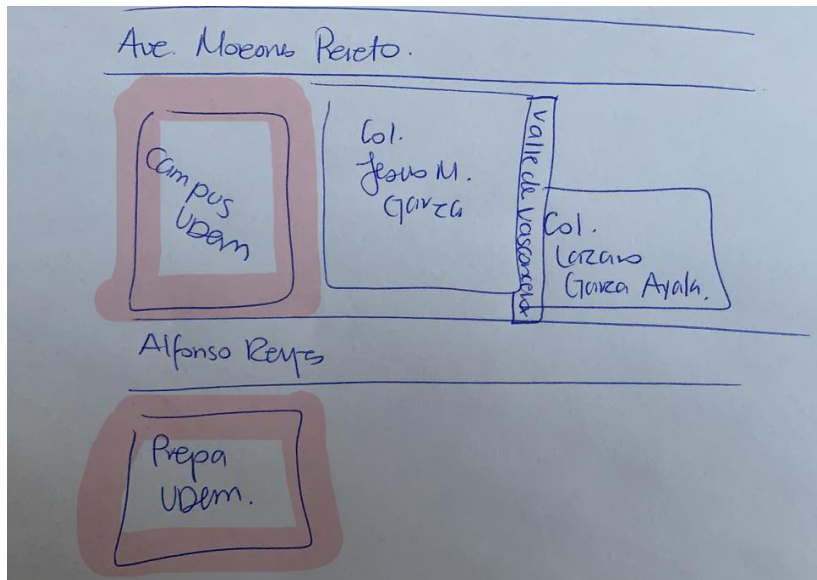 Ave. Morones Prieto.
Campus
UDEM
Col.
Jesus M.
Garza
Valle de Vasconcelos
Col.
Lazaro
Garza Ayala.
Alfonso Reyes
Prepa
UDEM.